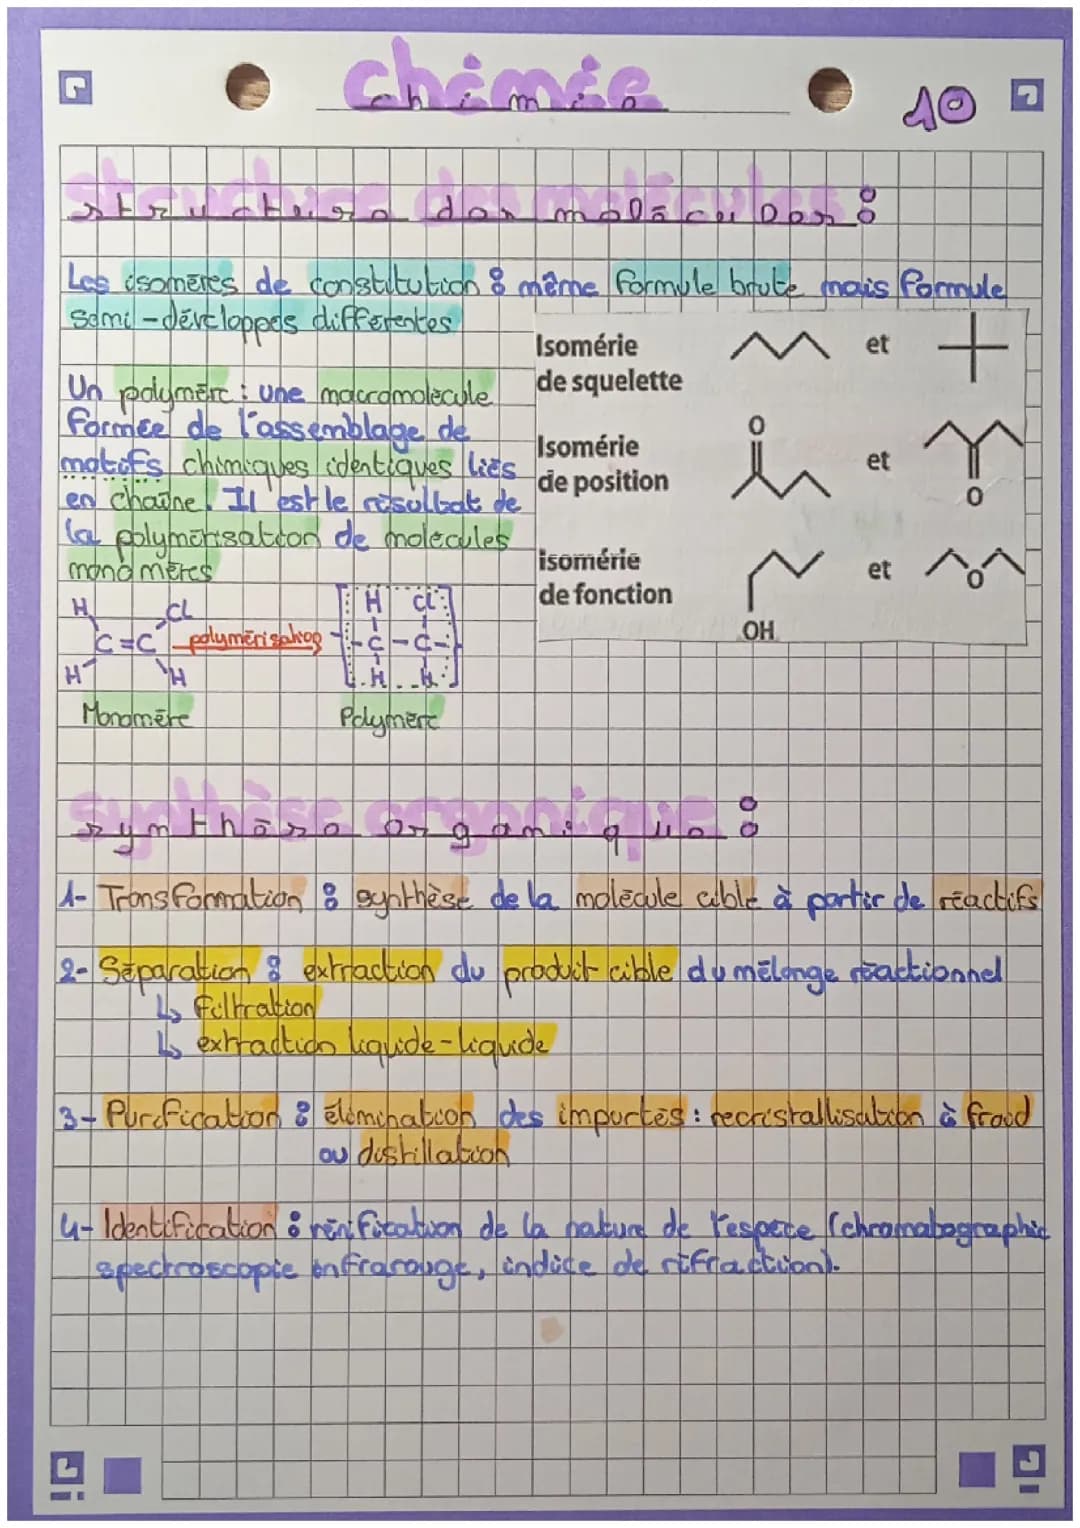 chimie
10
structure des molécules :
Les isomères de constitution : même formule brute mais formule
semi-développés différentes
Isomérie
de squelette
et
Un polymère : une macromolécule
formée de l'assemblage de
motifs chimiques identiques liés
en chaîne. Il est le résultat de
la polymérisation de molécules
monomères
Isomérie
de position
O
et
O
isomérie
de fonction
OH
et
O
H Cl
C=C
H H
polymérisation
H Cl
-C-C-
H H
Monomère
Polymère
synthèse organique :
1- Transformation : synthèse de la molécule cible à partir de réactifs
2- Séparation : extraction du produit cible du mélange réactionnel
↳ filtration
↳ extraction liquide-liquide
3- Purification : élimination des impurtés : recristallisation à froid
ou distillation
4- Identification : vérification de la nature de l'espèce (chromatographie
spectroscopie infrarouge, indice de réfraction).